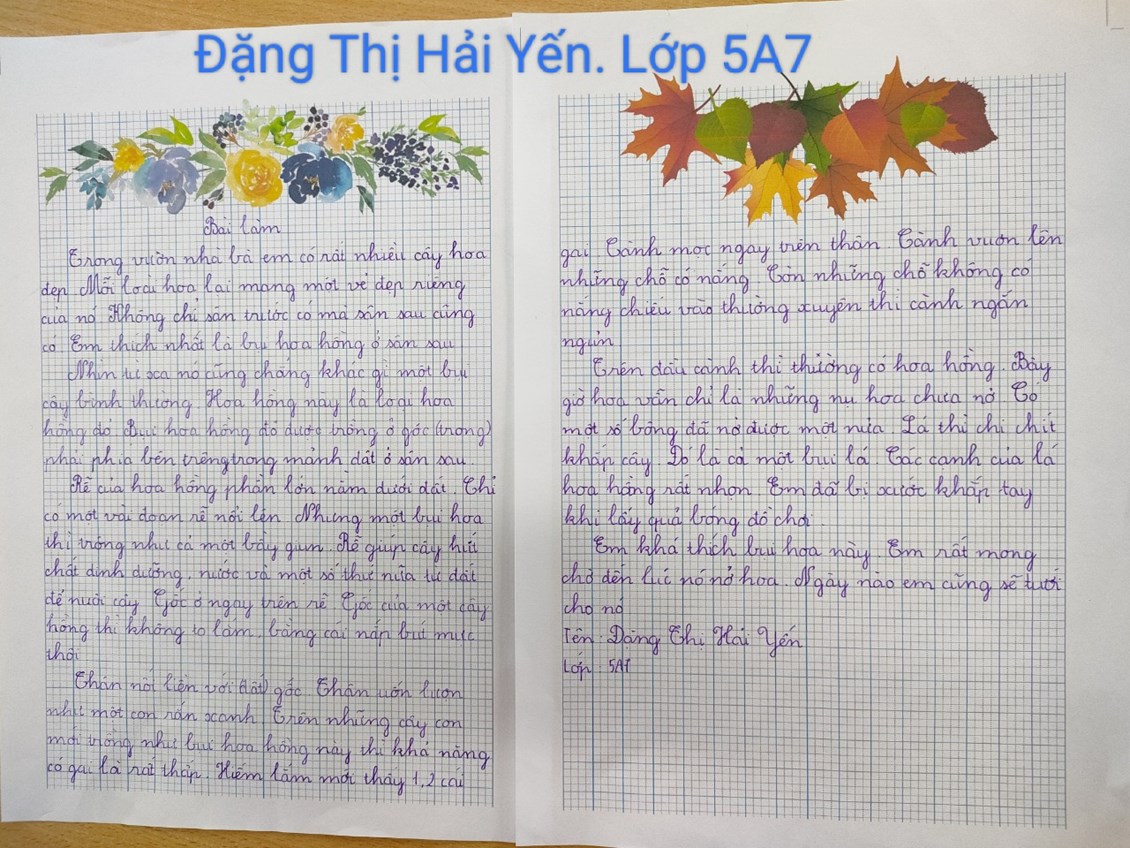 Đặng Thị Hải Yến. Lớp 5A7
Bài làm
Trong vườn nhà bà em có rất nhiều cây hoa
đẹp. Mỗi loài hoa lại mang một vẻ đẹp riêng
của nó. Không chỉ sân trước có mà sân sau cũng
có. Em thích nhất là bụi hoa hồng ở sân sau.
Nhìn từ xa nó cũng chẳng khác gì một bụi
cây bình thường. Hoa hồng này là loại hoa
hồng đỏ. Bụi hoa hồng đỏ được trồng ở góc (trong)
phải phía bên trêngtrong mảnh đất ở sân sau.
Rễ của hoa hồng phần lớn nằm dưới đất. Chỉ
có một vài đoạn rễ nổi lên. Nhưng một bụi hoa
thì trông như cả một bầy giun. Rễ giúp cây hút
chất dinh dưỡng, nước và một số thứ nữa từ đất
để nuôi cây. Gốc ở ngay trên rễ. Gốc của một cây
hồng thì không to lắm, bằng cái nắp bút mực
thôi.
Thân nối liền với (đất) gốc. Thân uốn lượn
như một con rắn xanh. Trên những cây con
mới trồng như bụi hoa hồng này thì khả năng
có gai là rất thấp. Hiếm lắm mới thấy 1, 2 cái
gai. Cành mọc ngay trên thân. Cành vươn lên
những chỗ có nắng. Còn những chỗ không có
nắng chiếu vào thường xuyên thì cành ngắn
ngủn.
Trên đầu cành thì thường có hoa hồng. Bây
giờ hoa vẫn chỉ là những nụ hoa chưa nở. Có
một số bông đã nở được một nửa. Lá thì chi chít
khắp cây. Đó là cả một bụi lá. Các cạnh của lá
hoa hồng rất nhọn. Em đã bị xước khắp tay
khi lấy quả bóng đồ chơi.
Em khá thích bụi hoa này. Em rất mong
chờ đến lúc nó nở hoa. Ngày nào em cũng sẽ tưới
cho nó.
Tên: Đặng Thị Hải Yến
Lớp: 5A7